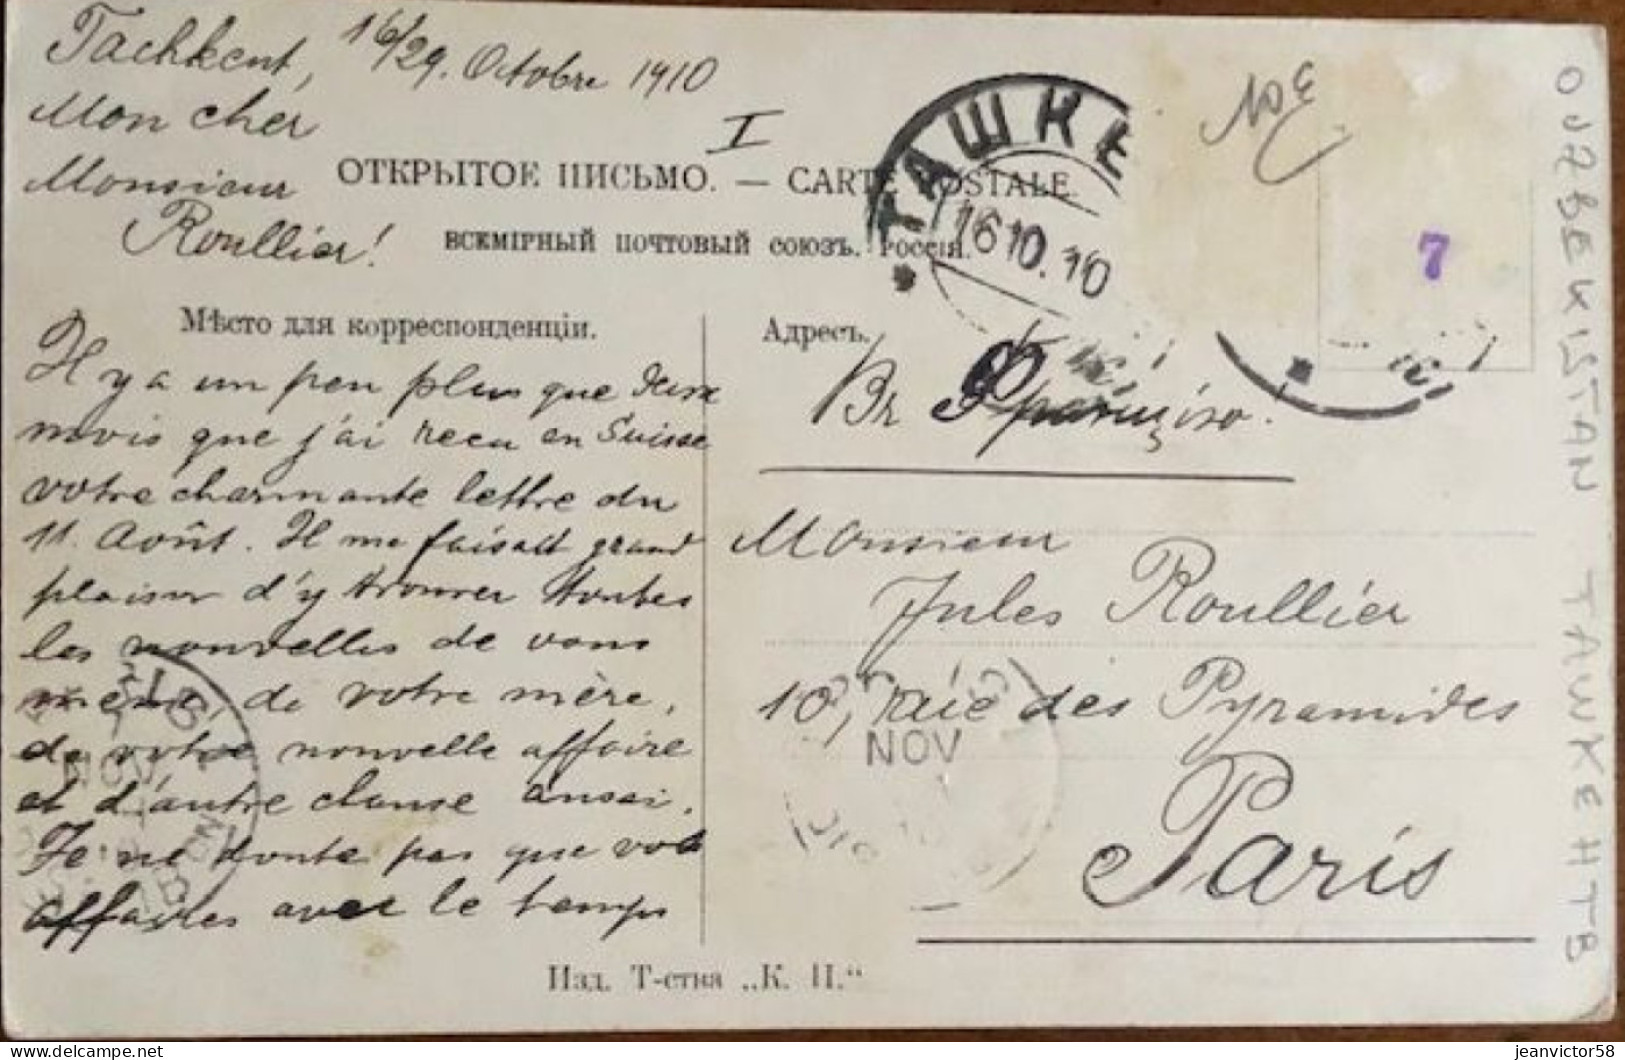 Tachkent, 16/29. Octobre 1910
Mon cher
Monsieur
Roullier!
I
ОТКРЫТОЕ ПИСЬМО. — CARTE POSTALE.
ВСЕМІРНЫЙ ПОЧТОВЫЙ СОЮЗЪ. РОССІЯ.
ТАШКЕ
16 10. 10
7
Мѣсто для корреспонденціи.
Il y a un peu plus que deux
mois que j'ai reçu en Suisse
votre charmante lettre du
11. Août. Il me faisait grand
plaisir d'y trouver toutes
les nouvelles de vous
même, de votre mère,
de votre nouvelle affaire
et d'autre chause aussi.
Je ne doute pas que vos
affaires avec le temps
Адресъ.
Monsieur
Jules Roullier
10, rue des Pyramides
NOV
Paris
Изд. Т-ства „К. П.“
OUZBEKISTAN TAWKEHTB
jeanvictor58